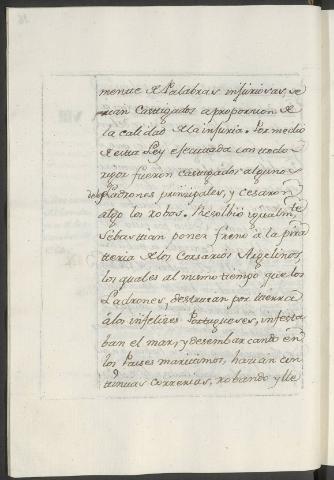 mente de Palabras injuriosas, se
rian castigados a proporcion de
la calidad de la injuria. Por medio
de esta Ley executada con todo
rigor fueron castigados algunos
de los Ladrones principales, y cesaron
algo los robos. Resolbiò igualmte
Sebastian poner freno á la pira
teria de los Corsarios Argelinos,
los quales al mismo tiempo que los
Ladrones, destruian por tierra
á los infelizes Portugueses, infesta
ban el mar, y desembarcando en
los Paises maritimos, hacian con
tinuas correrias, robando y lle